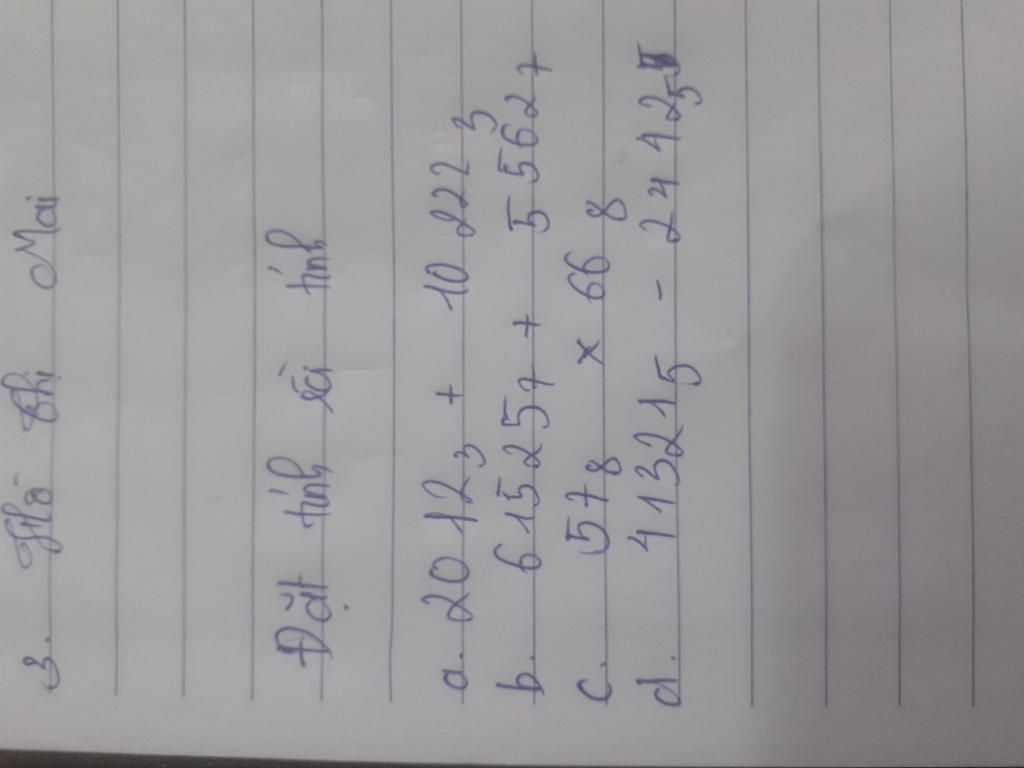 3. Hồ Thị Mai
Đặt tính rồi tính
a. 2012₃ + 10222₃
b. 61525₇ + 5562₇
c. 57₈ x 66₈
d. 41321₅ - 2442₅